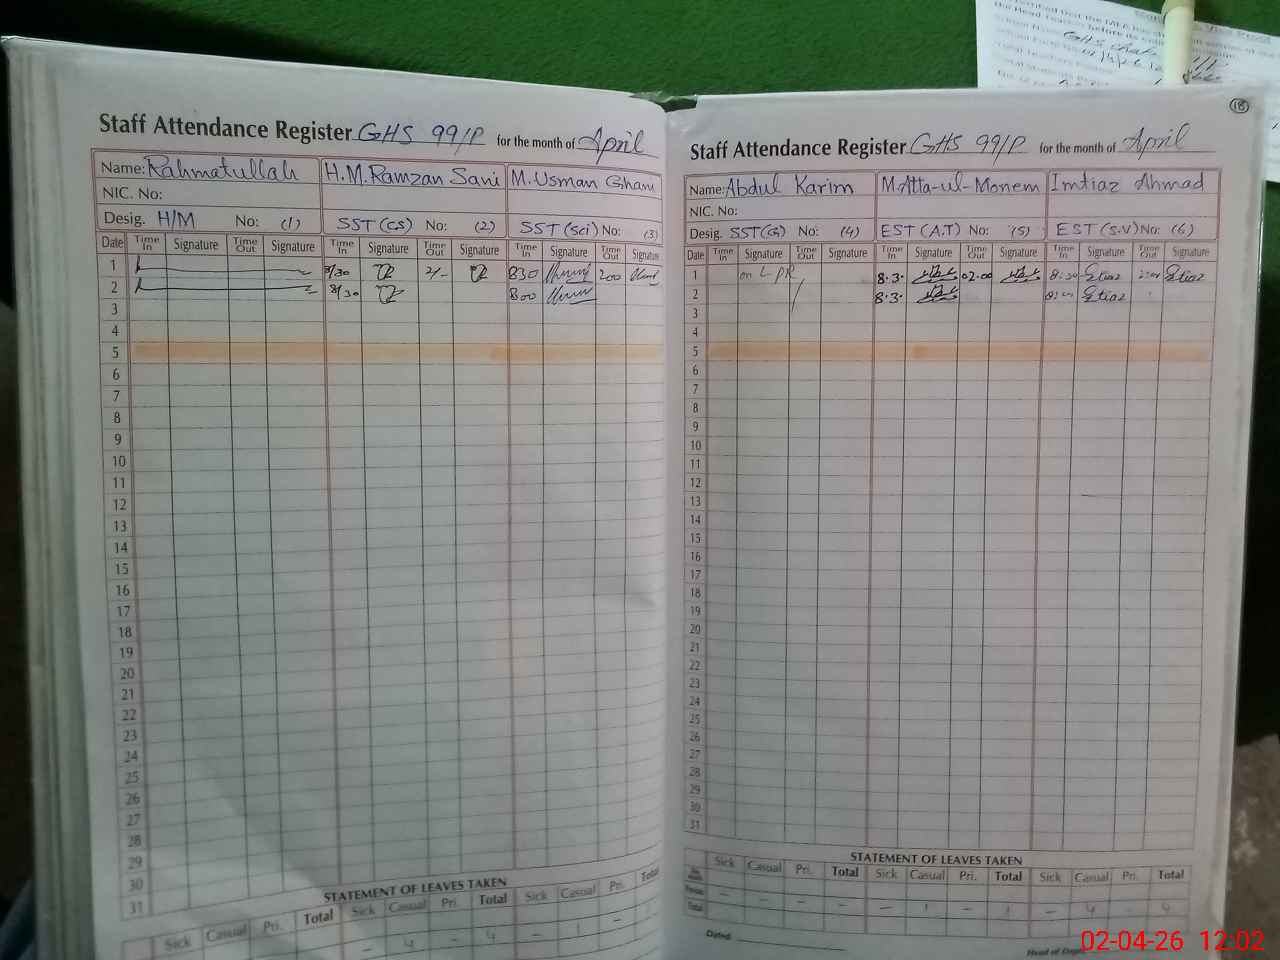 Staff Attendance Register GHS 99/P for the month of April
Name: Rahmatullah H.M. Ramzan Sani M. Usman Ghani
NIC. No:
Desig. H/M No: (1) SST (CS) No: (2) SST (Sci) No: (3)
Date Time In Signature Time Out Signature Time In Signature Time Out Signature Time In Signature Time Out Signature
1 8/30 2/- 830 200
2 8/30 800
3
4
5
6
7
8
9
10
11
12
13
14
15
16
17
18
19
20
21
22
23
24
25
26
27
28
29
30
31
STATEMENT OF LEAVES TAKEN
Sick Casual Pri. Total Sick Casual Pri. Total Sick Casual Pri. Total
- 4 - 4 - 1 -
18
Staff Attendance Register GHS 99/P for the month of April
Name: Abdul Karim M. Atta-ul-Monem Imtiaz Ahmad
NIC. No:
Desig. SST(G) No: (4) EST (A.T) No: (5) EST (S.V) No: (6)
Date Time In Signature Time Out Signature Time In Signature Time Out Signature Time In Signature Time Out Signature
1 on LPR 8.3. 02.00 8:30 Imtiaz 2:00 Imtiaz
2 8.3. Imtiaz
3
4
5
6
7
8
9
10
11
12
13
14
15
16
17
18
19
20
21
22
23
24
25
26
27
28
29
30
31
STATEMENT OF LEAVES TAKEN
Sick Casual Pri. Total Sick Casual Pri. Total Sick Casual Pri. Total
Total - - - - - 1 - 1 - 4 - 4
Dated: Head of Deptt.
02-04-26 12:02